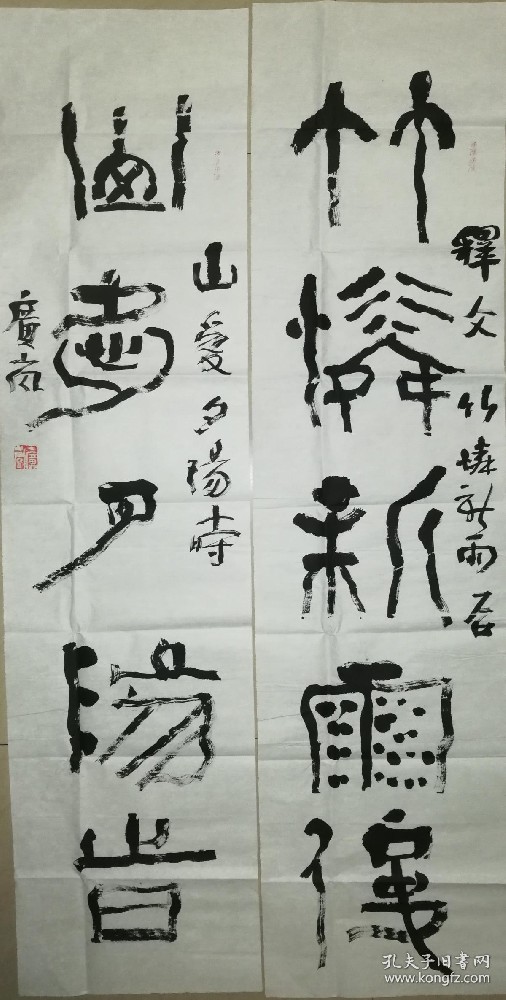 竹憐新雨後
釋文 竹憐新雨后
山愛夕陽時
山愛夕陽時
廣
孔夫子旧书网
www.kongfz.com